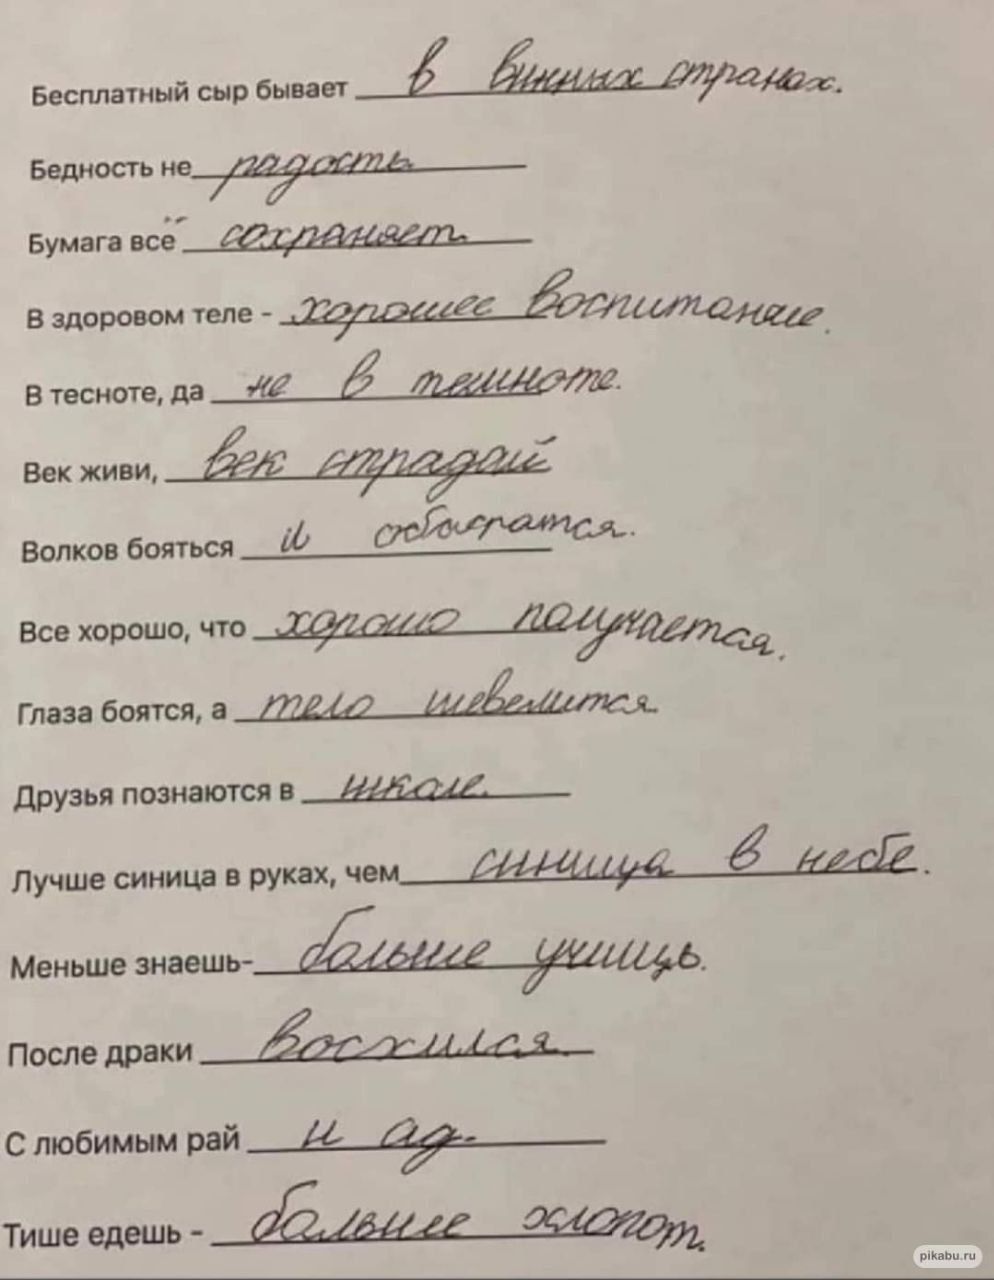 Бесплатный сыр бывает в винных странах.
Бедность не радость
Бумага всё сохраняет.
В здоровом теле - хорошее воспитание.
В тесноте, да не в темноте.
Век живи, век страдай
Волков бояться и
Все хорошо, что хорошо получается.
Глаза боятся, а тело шевелится
Друзья познаются в школе.
Лучше синица в руках, чем синица в небе.
Меньше знаешь- больше учишь.
После драки восхился.
С любимым рай и ад.
Тише едешь - больше хлопот.
pikabu.ru